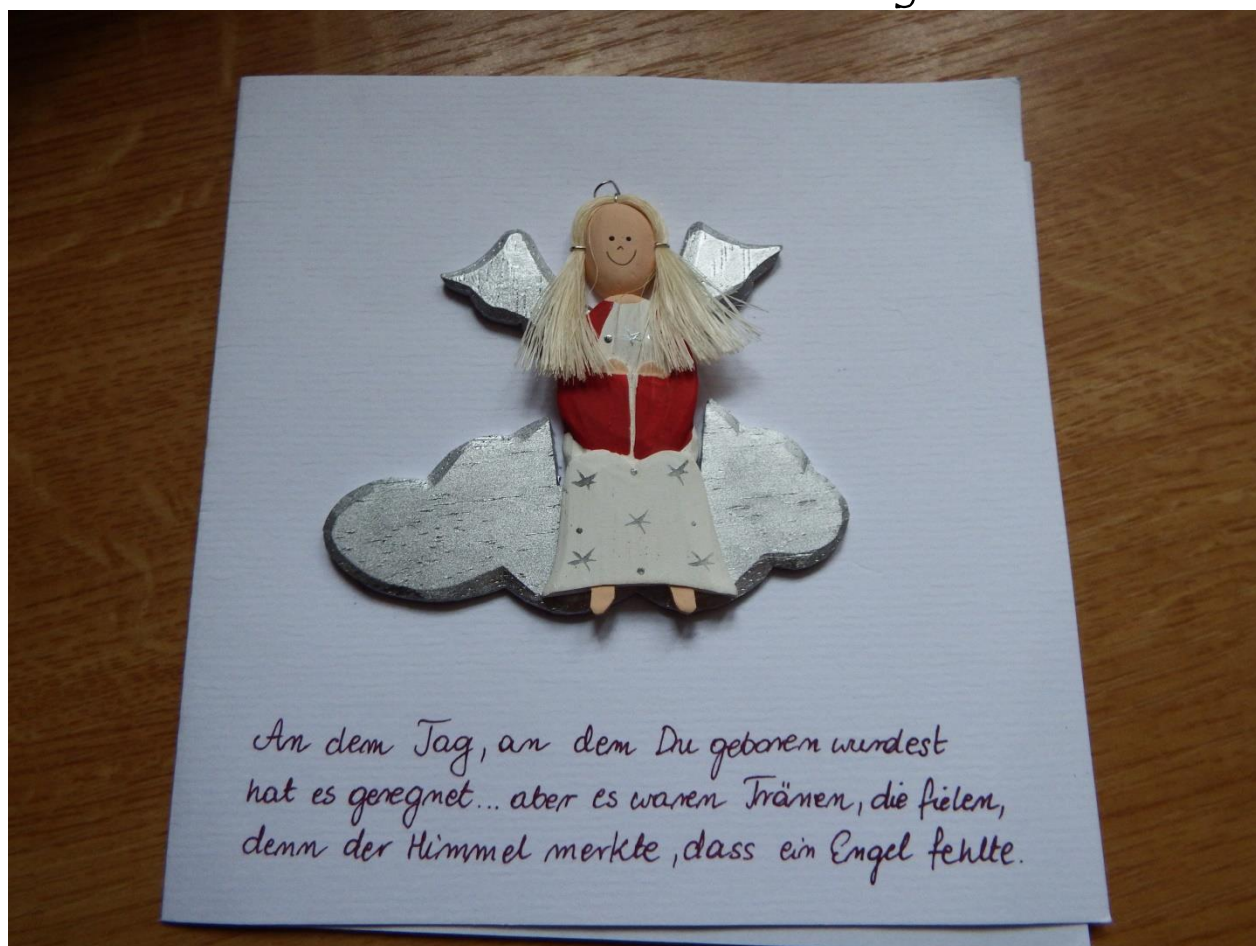 An dem Tag, an dem Du geboren wurdest
hat es geregnet... aber es waren Tränen, die fielen,
denn der Himmel merkte, dass ein Engel fehlte.